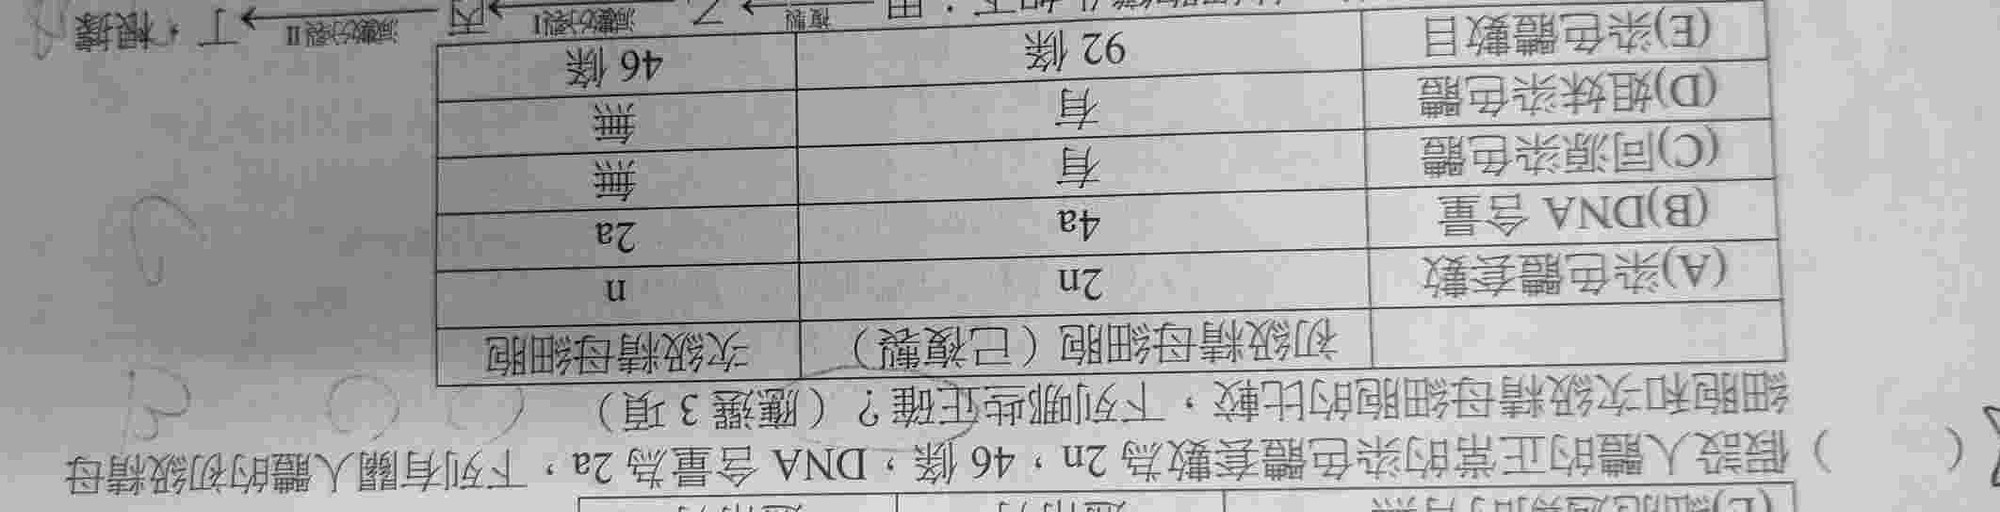 (E)細胞
(　　) 假設人體的正常的染色體套數為 2n，46 條，DNA 含量為 2a，下列有關人體的初級精母
細胞和次級精母細胞的比較，下列哪些正確？（應選 3 項）
初級精母細胞（已複製） 次級精母細胞
(A)染色體套數 2n n
(B)DNA 含量 4a 2a
(C)同源染色體 有 無
(D)姐妹染色體 有 無
(E)染色體數目 92 條 46 條
如下：甲 複製→ 乙 減數分裂I→ 丙 減數分裂II→ 丁，根據